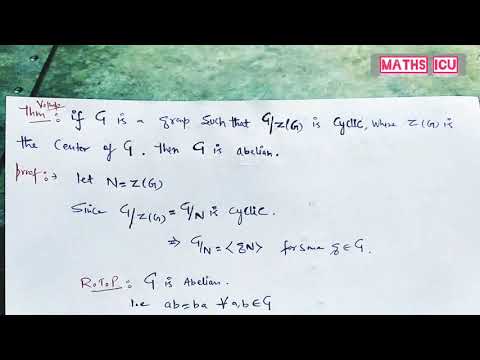 MATHS ICU
Thm: if G is a group such that G/Z(G) is cyclic, where Z(G) is
the center of G. Then G is abelian.
proof:→ let N=Z(G)
Since G/Z(G) = G/N is cyclic.
⇒ G/N = <gN> for some g∈G.
R.T.P: G is Abelian.
i.e ab=ba ∀ a,b∈G